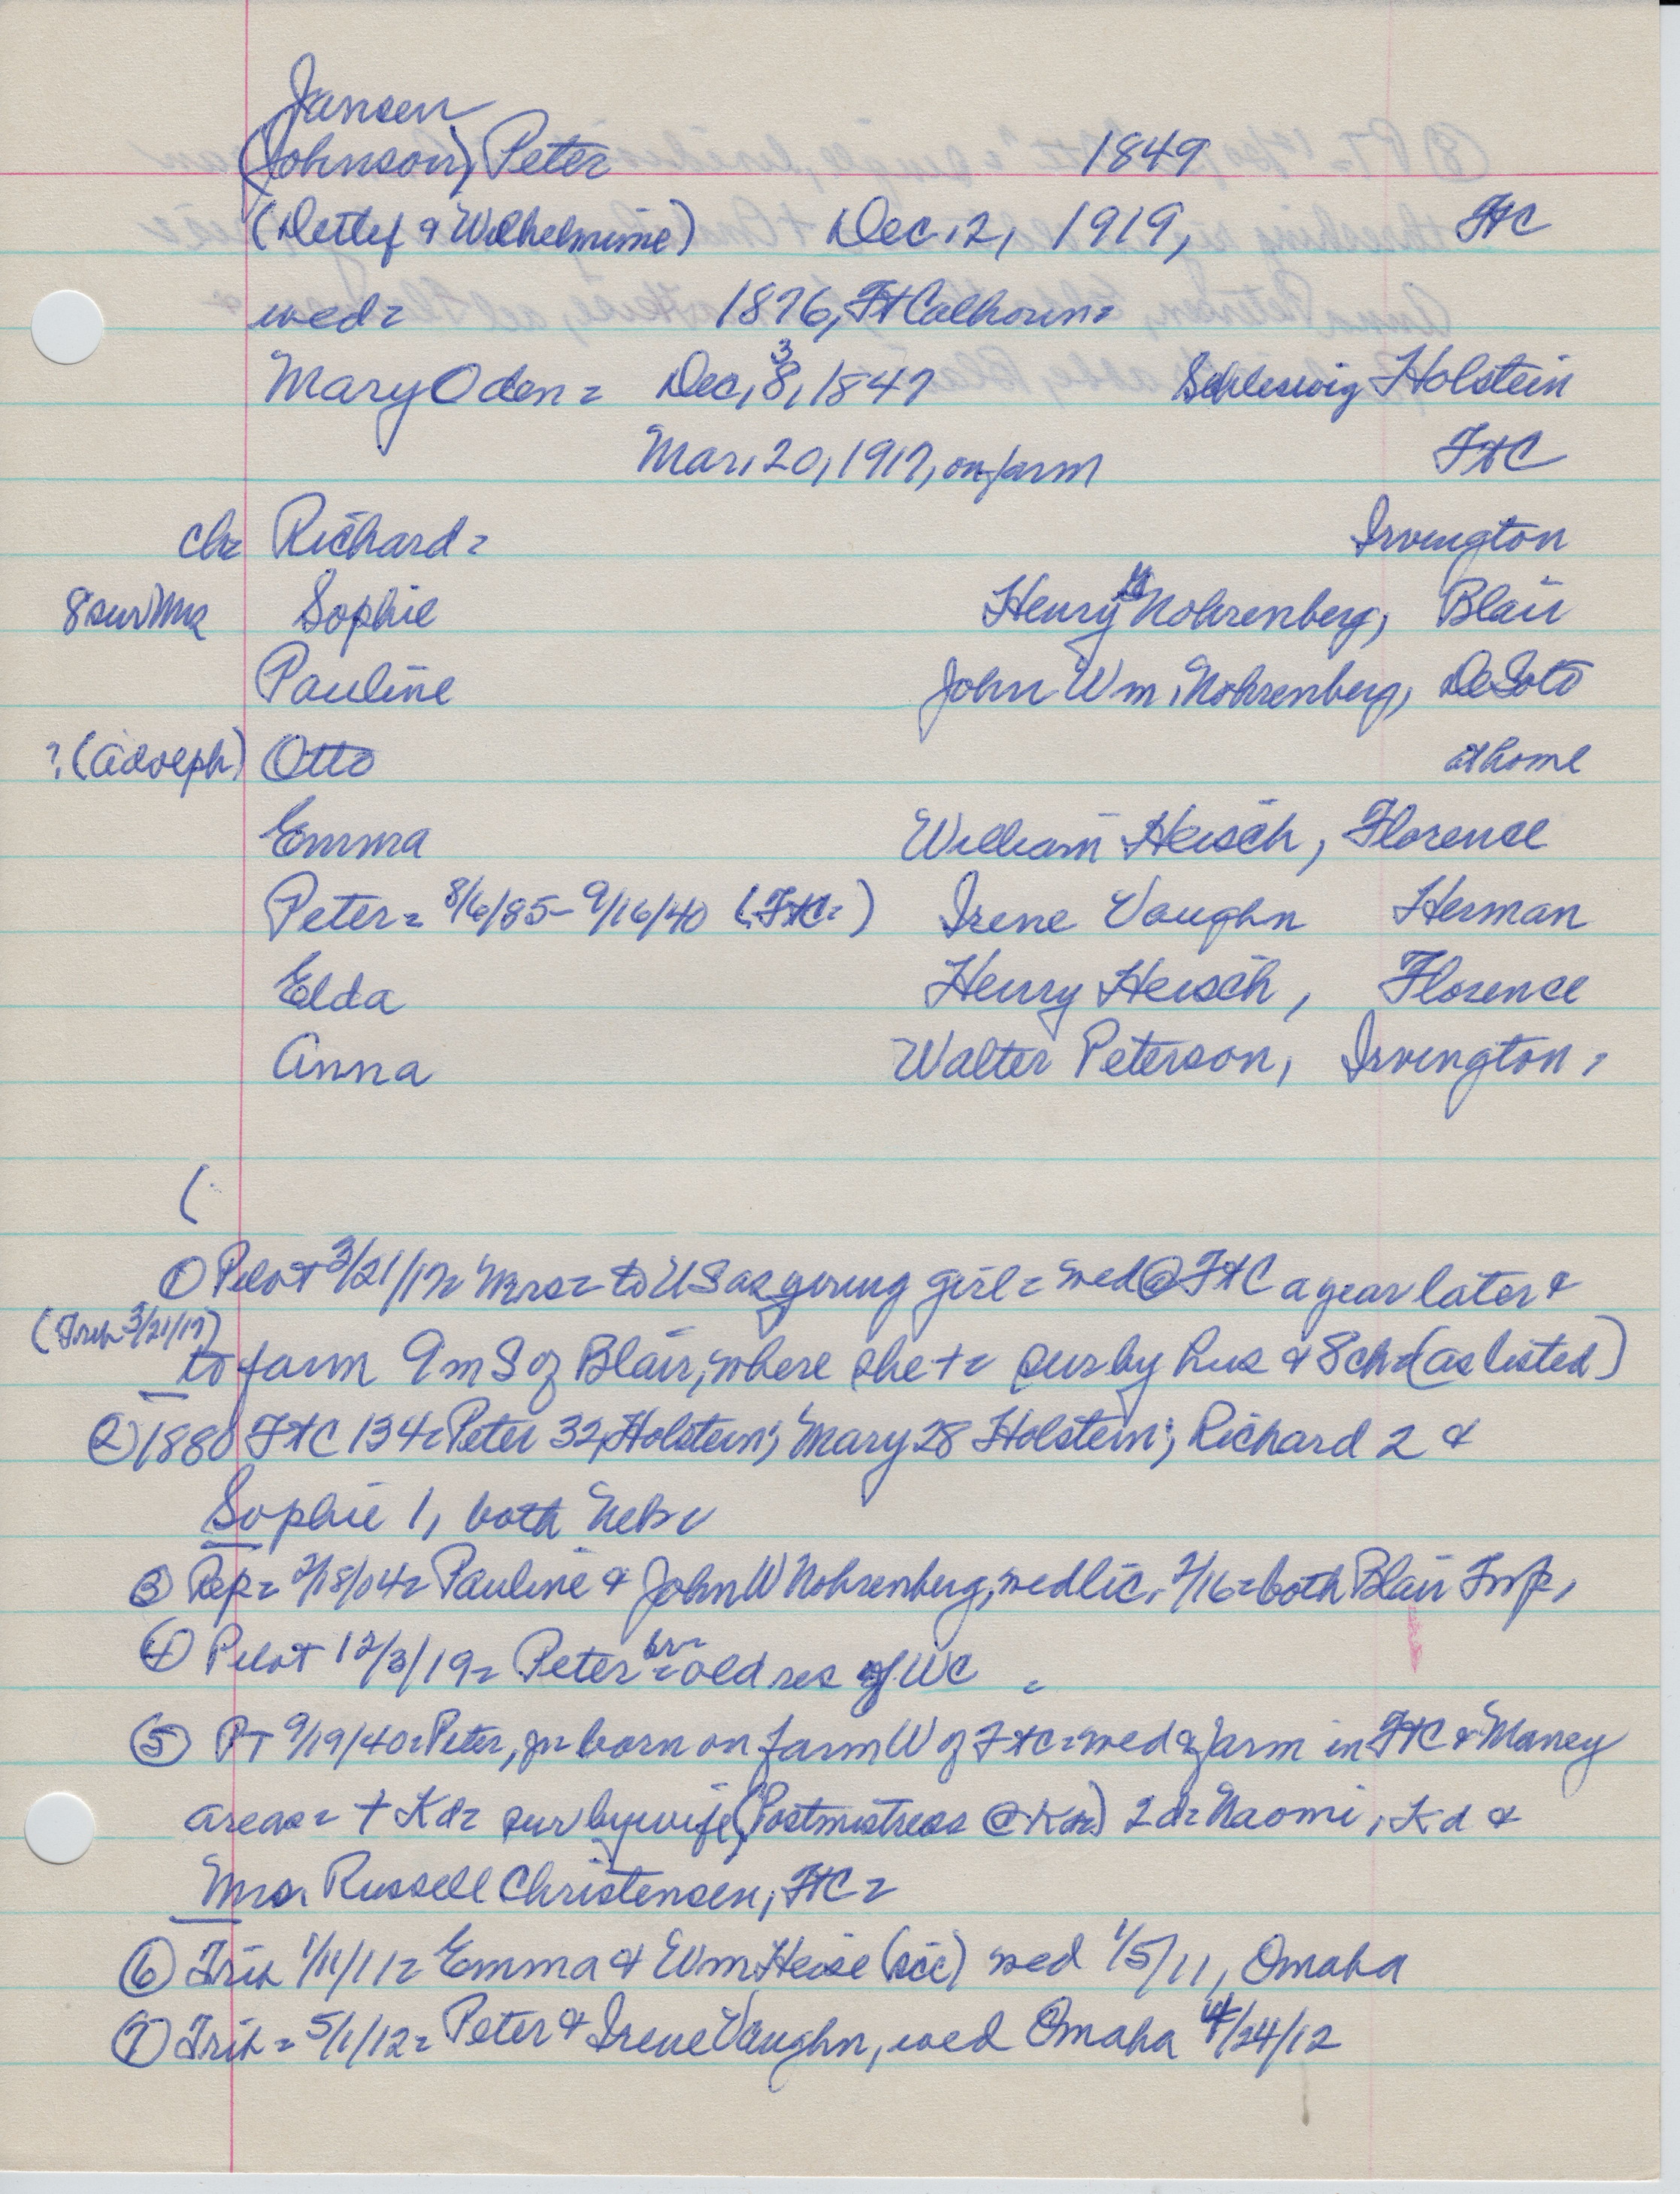 Jansen
(Johnson), Peter 1849
(Detlef & Wilhelmine) Dec. 2, 1919, FtC
wed= 1876, Ft Calhoun=
Mary Oden= Dec, 8, 3, 1847 Schleswig Holstein
Mar. 20, 1917, on farm FtC
ch= Richard= Irvington
8 sur Mrs Sophie Henry Nohrenberg, Blair
Pauline John Wm. Nohrenberg, DeSoto
?(Adolph) Otto at home
Emma William Heisch, Florence
Peter= 8/6/85- 9/16/40 (FtC=) Irene Vaughn Herman
Elda Henry Heisch, Florence
Anna Walter Peterson, Irvington,
(
① Pilot 3/21/17= Mrs= to US as young girl= wed @ FtC a year later &
(Trib 3/21/17)
to farm 9 m S of Blair, where she += sur by hus & 8 ch= (as listed)
② 1880 FtC 134= Peter 32, Holstein; Mary 28 Holstein; Richard 2 &
Sophie 1, both Nebr
③ Rep= 2/18/04= Pauline & John W Nohrenberg, wed lic. 2/16= both Blair Twp,
④ Pilot 12/3/19= Peter sr= old res of WC =
⑤ PT 9/19/40= Peter, jr= born on farm W of FtC= wed & farm in FtC & Maney
areas= + Kd= sur by wife (Postmistress @ Kd=) 2 d= Naomi, Kd &
Mrs. Russell Christensen, FtC=
⑥ Trib 1/11/11= Emma & Wm Heise (sic) wed 1/5/11, Omaha
⑦ Trib= 5/1/12= Peter & Irene Vaughn, wed Omaha 4/24/12